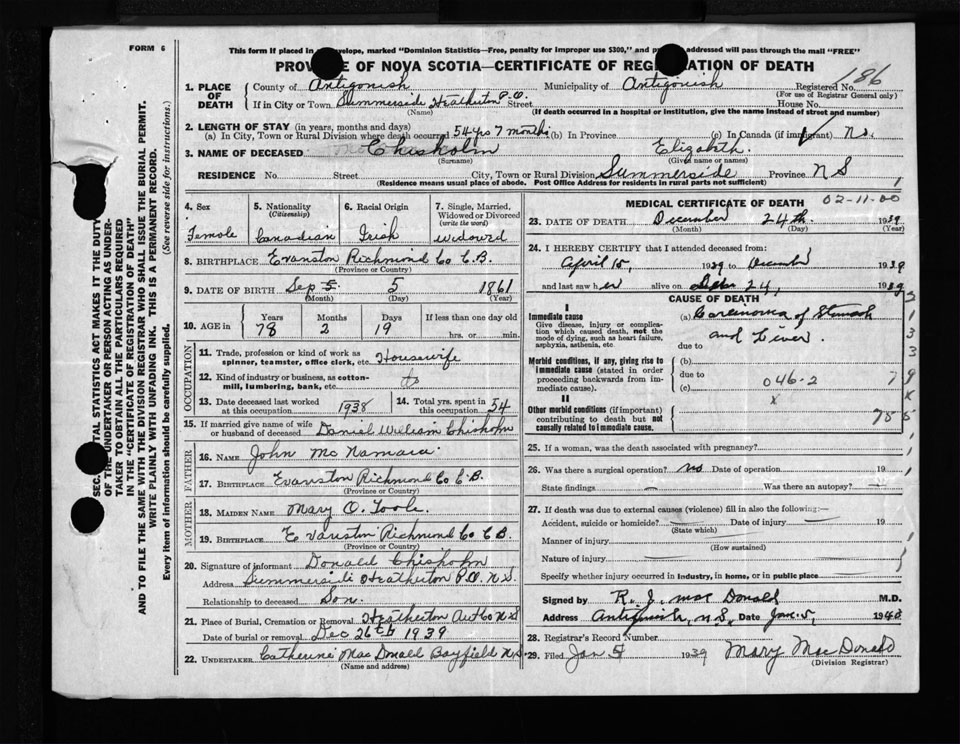 FORM 6
This form if placed in envelope, marked "Dominion Statistics—Free, penalty for improper use $300," and addressed will pass through the mail "FREE"
PROVINCE OF NOVA SCOTIA—CERTIFICATE OF REGISTRATION OF DEATH
186
1. PLACE OF DEATH County of Antigonish Municipality of Antigonish Registered No.
(For use of Registrar General only)
If in City or Town Summerside Heatherton P.O. Street House No.
(Name) (If death occurred in a hospital or institution, give the name instead of street and number)
2. LENGTH OF STAY (in years, months and days)
(a) In City, Town or Rural Division where death occurred 54 yrs 7 months (b) In Province (c) In Canada (if immigrant) No.
3. NAME OF DECEASED Chisholm Elizabeth.
(Surname) (Given name or names)
RESIDENCE No. Street City, Town or Rural Division Summerside Province N S
(Residence means usual place of abode. Post Office Address for residents in rural parts not sufficient)
4. Sex Female
5. Nationality (Citizenship) Canadian
6. Racial Origin Irish
7. Single, Married, Widowed or Divorced (write the word) Widowed
8. BIRTHPLACE Evanston Richmond Co C.B.
(Province or Country)
9. DATE OF BIRTH Sep 5 5 1861
(Month) (Day) (Year)
10. AGE in Years Months Days If less than one day old
78 2 19 hrs. or min.
OCCUPATION
11. Trade, profession or kind of work as spinner, teamster, office clerk, etc. Housewife
12. Kind of industry or business, as cotton-mill, lumbering, bank, etc. do
13. Date deceased last worked at this occupation 1938
14. Total yrs. spent in this occupation 54
15. If married give name of wife or husband of deceased Daniel William Chisholm
FATHER
16. NAME John Mc Namara.
17. BIRTHPLACE Evanston Richmond Co C.B.
(Province or Country)
MOTHER
18. MAIDEN NAME Mary O. Toole.
19. BIRTHPLACE Evanston Richmond Co C.B.
(Province or Country)
20. Signature of informant Donald Chisholm
Address Summerside Heatherton P.O. N.S.
Relationship to deceased Son.
21. Place of Burial, Cremation or Removal Heatherton Ant Co N S
Date of burial or removal Dec 26th 1939
22. UNDERTAKER Catherine MacDonald Bayfield N.S.
(Name and address)
MEDICAL CERTIFICATE OF DEATH 02-11-00
23. DATE OF DEATH December 24th 1939
(Month) (Day) (Year)
24. I HEREBY CERTIFY that I attended deceased from:
April 15, 1939 to December 1939
and last saw her alive on Dec 24, 1939
CAUSE OF DEATH
I
Immediate cause
Give disease, injury or complication which caused death, not the mode of dying, such as heart failure, asphyxia, asthenia, etc.
(a) Carcinoma of Stomach
and Liver.
due to
Morbid conditions, if any, giving rise to immediate cause (stated in order proceeding backwards from immediate cause).
(b)
due to
(c) 046-2
II
Other morbid conditions (if important) contributing to death but not causally related to immediate cause.
x
25. If a woman, was the death associated with pregnancy?
26. Was there a surgical operation? no Date of operation 19
State findings Was there an autopsy?
27. If death was due to external causes (violence) fill in also the following:—
Accident, suicide or homicide? Date of injury 19
(State which)
Manner of injury
(How sustained)
Nature of injury
Specify whether injury occurred in industry, in home, or in public place
Signed by R. J. Mac Donald M.D.
Address Antigonish, N.S. Date Jan. 5, 1940
28. Registrar's Record Number
29. Filed Jan 5 1939 Mary MacDonald
(Division Registrar)
TAL STATISTICS ACT MAKES IT THE DUTY
OF THE UNDERTAKER OR PERSON ACTING AS UNDER-
TAKER TO OBTAIN ALL THE PARTICULARS REQUIRED
IN THE "CERTIFICATE OF REGISTRATION OF DEATH"
AND TO FILE THE SAME WITH THE DIVISION REGISTRAR WHO SHALL ISSUE THE BURIAL PERMIT.
WRITE PLAINLY WITH UNFADING INK. THIS IS A PERMANENT RECORD.
Every item of information should be carefully supplied. (See reverse side for instructions.)